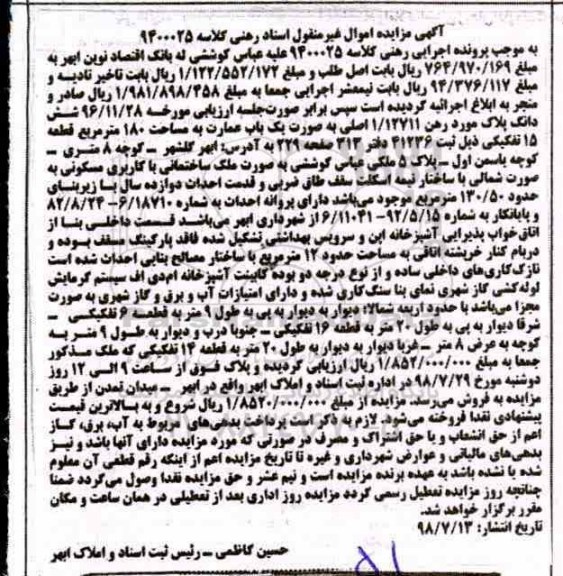 آگهی مزایده اموال غیرمنقول اسناد رهنی کلاسه ۹۴۰۰۰۲۵
به موجب پرونده اجرایی رهنی کلاسه ۹۴۰۰۰۲۵ علیه عباس کوششی له بانک اقتصاد نوین ابهر به
مبلغ ۷۶۴/۹۷۰/۱۶۹ ریال بابت اصل طلب و مبلغ ۱/۱۲۲/۵۵۲/۱۷۲ ریال بابت تاخیر تادیه و
مبلغ ۹۴/۳۷۶/۱۱۷ ریال بابت نیمعشر اجرایی جمعا به مبلغ ۱/۹۸۱/۸۹۸/۴۵۸ ریال صادر و
منجر به ابلاغ اجرائیه گردیده است سپس برابر صورتجلسه ارزیابی مورخه ۹۶/۱۱/۲۸ شش
دانگ پلاک مورد رهن ۱/۱۲۷۱۱ اصلی به صورت یک باب عمارت به مساحت ۱۸۰ مترمربع قطعه
۱۵ تفکیکی ذیل ثبت ۳۱۲۳۶ دفتر ۲۱۲ صفحه ۲۲۹ به آدرس: ابهر گلشهر ـ کوچه ۸ متری ـ
کوچه یاسمن اول ـ پلاک ۵ ملکی عباس کوششی به صورت ملک ساختمانی با کاربری مسکونی به
صورت شمالی با ساختار نیمه اسکلت سقف طاق ضربی و قدمت احداث دوازده سال با زیربنای
حدود ۱۳۰/۵۰ مترمربع موجود می‌باشد دارای پروانه احداث به شماره ۶/۱۸۷۱۰-۸۲/۸/۲۴
و پایانکار به شماره ۶/۱۱۰۴۱-۹۲/۵/۱۵ از شهرداری ابهر می‌باشد قسمت داخلی بنا از
اتاق‌خواب پذیرایی آشپزخانه اپن و سرویس بهداشتی تشکیل شده فاقد پارکینگ مسقف بوده و
دربام کنار خرپشته اتاقی به مساحت حدود ۱۲ مترمربع با ساختار مصالح بنایی احداث شده است
نازک‌کاری‌های داخلی ساده و از نوع درجه دو بوده کابینت آشپزخانه ام‌دی اف سیستم گرمایش
لوله‌کشی گاز شهری نمای بنا سنگ‌کاری شده و دارای امتیازات آب و برق و گاز شهری به صورت
مجزا می‌باشد با حدود اربعه شمالا دیوار به دیوار به پی به طول ۹ متر به قطعه ۶ تفکیکی ـ
شرقا دیوار به پی به طول ۲۰ متر به قطعه ۱۶ تفکیکی ـ جنوبا درب و دیوار به طول ۹ متر به
کوچه به عرض ۸ متر ـ غربا دیوار به دیوار به طول ۲۰ متر به قطعه ۱۴ تفکیکی که ملک مذکور
جمعا به مبلغ ۱/۸۵۲/۰۰۰/۰۰۰ ریال ارزیابی گردیده و پلاک فوق از ساعت ۹ الی ۱۲ روز
دوشنبه مورخ ۹۸/۷/۲۹ در اداره ثبت اسناد و املاک ابهر واقع در ابهر ـ میدان تمدن از طریق
مزایده به فروش می‌رسد. مزایده از مبلغ ۱/۸۵۲۰/۰۰۰/۰۰۰ ریال شروع و به بالاترین قیمت
پیشنهادی نقدا فروخته می‌شود. لازم به ذکر است پرداخت بدهی‌های مربوط به آب، برق، گاز
اعم از حق انشعاب و یا حق اشتراک و مصرف در صورتی که مورد مزایده دارای آنها باشد و نیز
بدهی‌های مالیاتی و عوارض شهرداری و غیره تا تاریخ مزایده اعم از اینکه رقم قطعی آن معلوم
شده یا نشده باشد به عهده برنده مزایده است و نیم عشر و حق مزایده نقدا وصول می‌گردد ضمنا
چنانچه روز مزایده تعطیل رسمی گردد مزایده روز اداری بعد از تعطیلی در همان ساعت و مکان
مقرر برگزار خواهد شد.
تاریخ انتشار: ۹۸/۷/۱۳
حسین کاظمی ـ رئیس ثبت اسناد و املاک ابهر